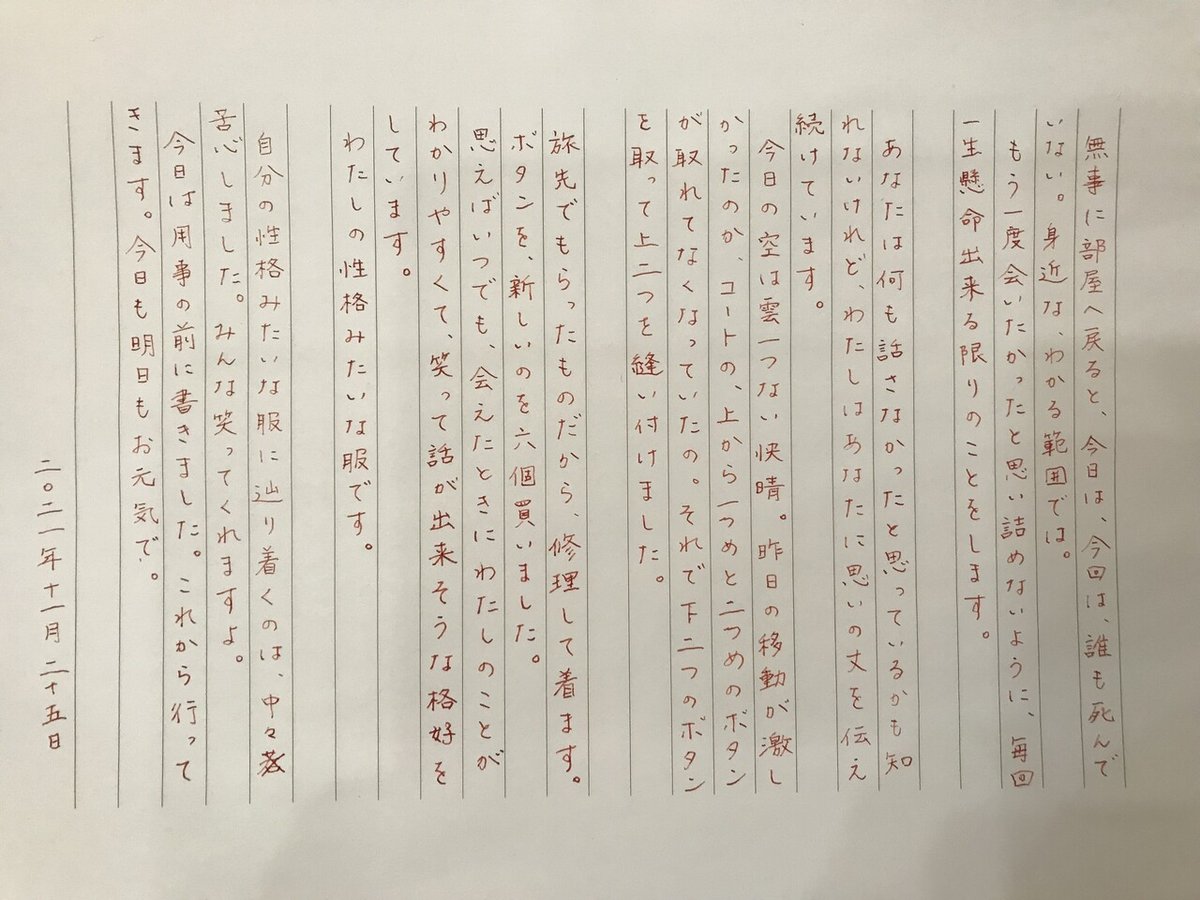 無事に部屋へ戻ると、今日は、今回は、誰も死んで
いない。身近な、わかる範囲では。
もう一度会いたかったと思い詰めないように、毎回
一生懸命出来る限りのことをします。
あなたは何も話さなかったと思っているかも知
れないけれど、わたしはあなたに思いの丈を伝え
続けています。
今日の空は雲一つない快晴。昨日の移動が激し
かったのか、コートの、上から一つめと二つめのボタン
が取れてなくなっていたの。それで下二つのボタン
を取って上二つを縫い付けました。
旅先でもらったものだから、修理して着ます。
ボタンを、新しいのを六個買いました。
思えばいつでも、会えたときにわたしのことが
わかりやすくて、笑って話が出来そうな格好を
しています。
わたしの性格みたいな服です。
自分の性格みたいな服に辿り着くのは、中々
苦心しました。みんな笑ってくれますよ。
今日は用事の前に書きました。これから行って
きます。今日も明日もお元気で。
二〇二一年十一月二十五日